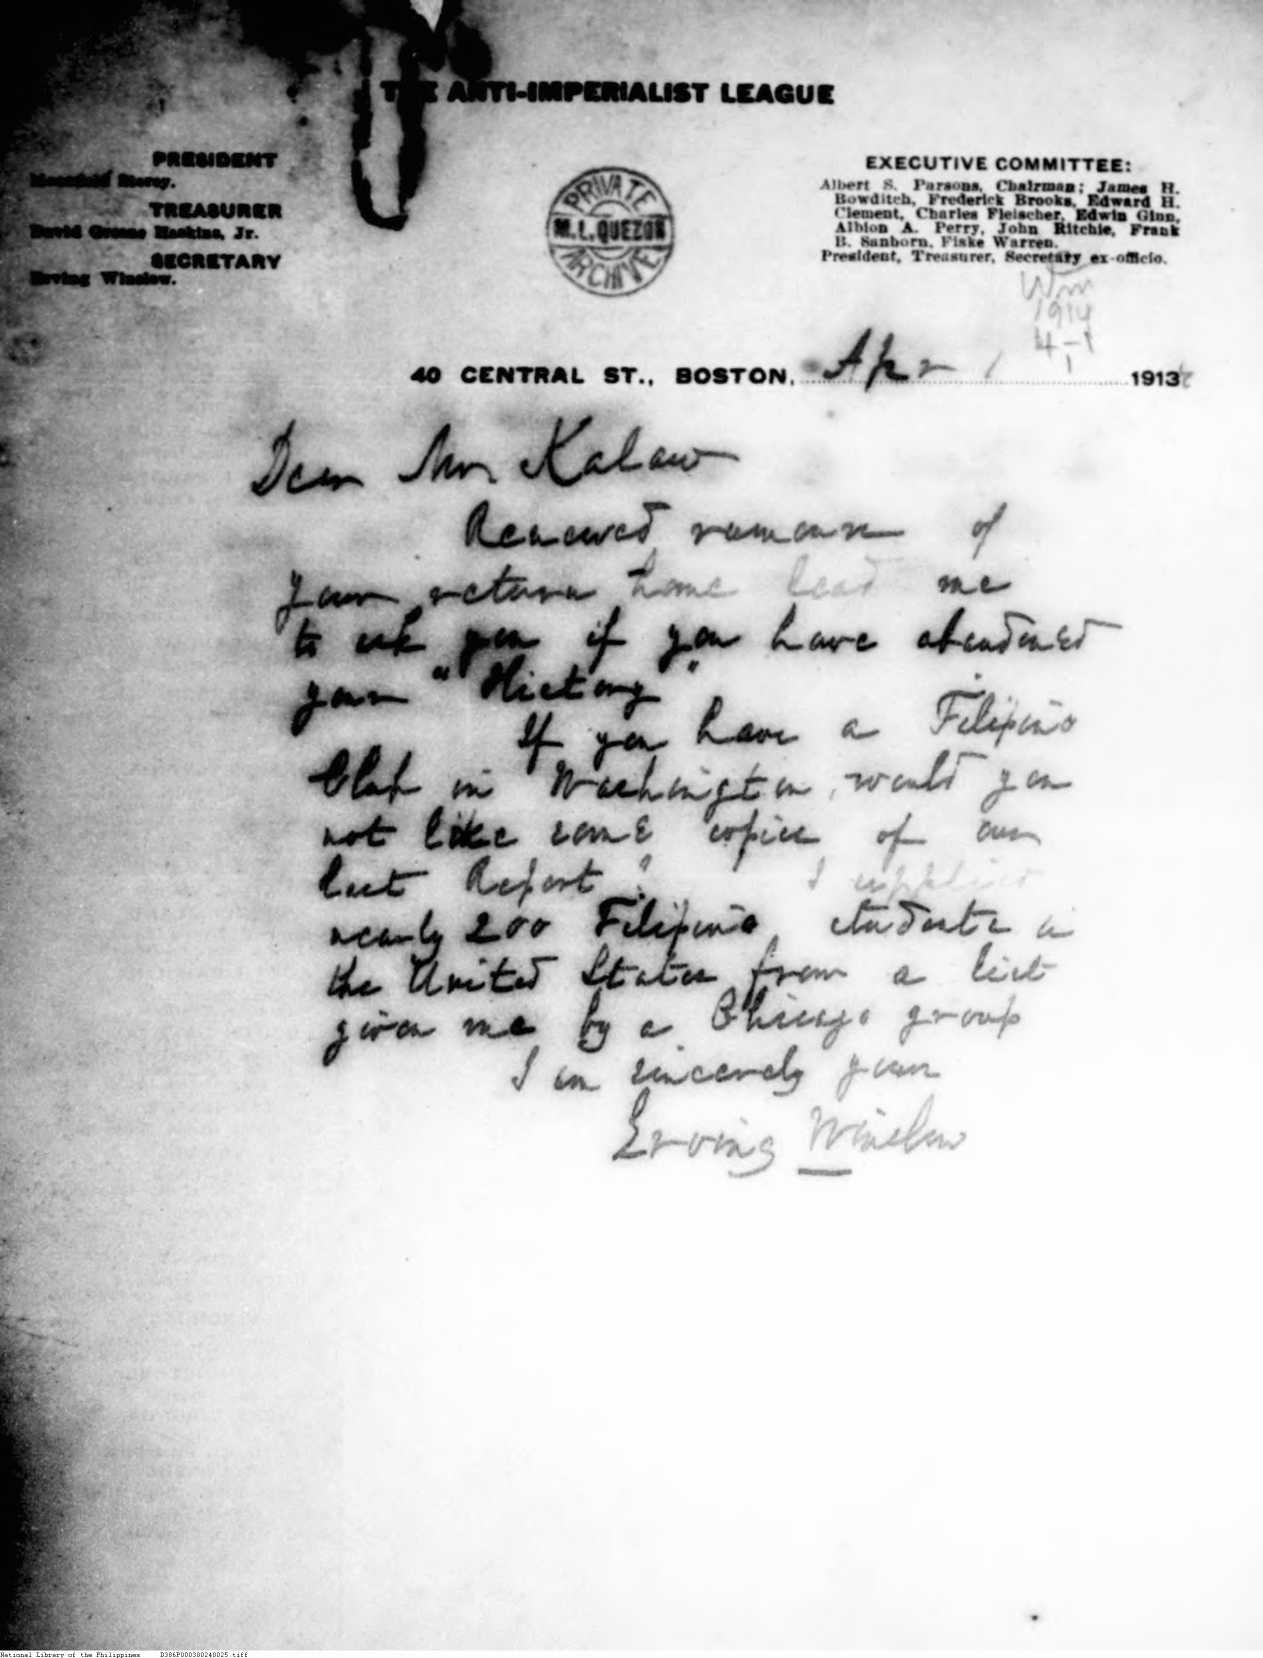 THE ANTI-IMPERIALIST LEAGUE
PRESIDENT
Moorfield Storey.
TREASURER
David Greene Haskins, Jr.
SECRETARY
Erving Winslow.
PRIVATE
M. L. QUEZON
ARCHIVE
EXECUTIVE COMMITTEE:
Albert S. Parsons, Chairman; James H.
Bowditch, Frederick Brooks, Edward H.
Clement, Charles Fleischer, Edwin Ginn,
Albion A. Perry, John Ritchie, Frank
B. Sanborn, Fiske Warren.
President, Treasurer, Secretary ex-officio.
1914
4-1
40 CENTRAL ST., BOSTON, Apr 1 1913
Dear Mr. Kalaw
Renewed rumours of
your return home lead me
to ask you if you have abandoned
your "History"
If you have a Filipino
Club in Washington, would you
not like some copies of our
last Report? I supplied
nearly 200 Filipino students in
the United States from a list
given me by a Chicago group
I am sincerely yours
Erving Winslow
National Library of the Philippines D386P000300240025.tiff